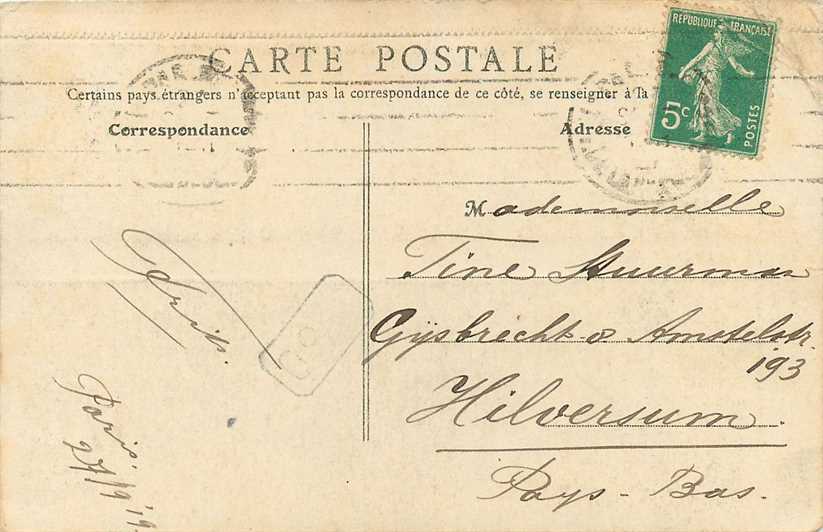 CARTE POSTALE
Certains pays étrangers n'acceptant pas la correspondance de ce côté, se renseigner à la
Correspondance
Adresse
RÉPUBLIQUE FRANÇAISE
5c
POSTES
Mademoiselle
Tine Stuurman
Gijsbrecht v Amstelstr.
193
Hilversum
Pays-Bas.
Frits.
Paris.
27/9'19